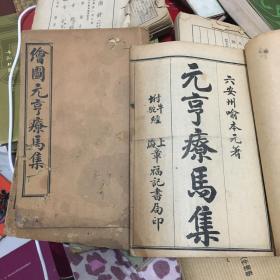 繪圖元亨療馬集
六安州喻本元著
元亨療馬集
附牛駝經
上海章福記書局印